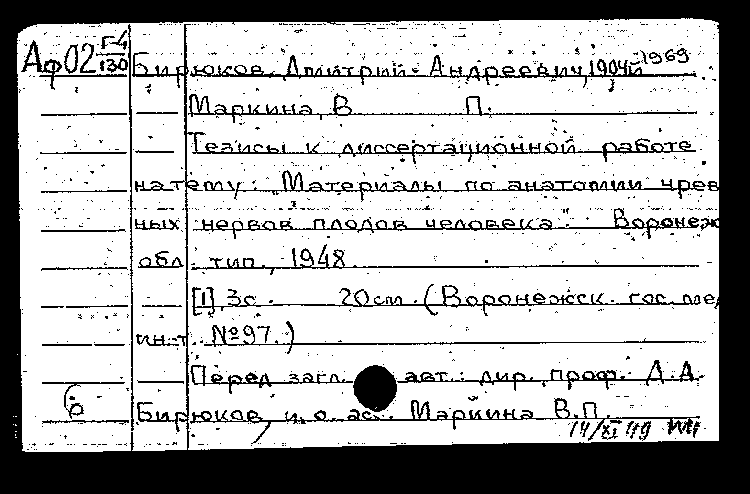 Аф02 Г-4/130 Бирюков, Дмитрий Андреевич, 1904й 1969
Маркина, В П.
Тезисы к диссертационной работе
на тему: "Материалы по анатомии чрев
ных нервов плодов человека". Воронеж
обл. тип., 1948
[1], 3с. 20см. (Воронежск. гос. мед
ин-т. №97.)
Перед загл. авт.: дир., проф. Д.А.
Бирюков, и. о. ас. Маркина В.П.
14/XI 49